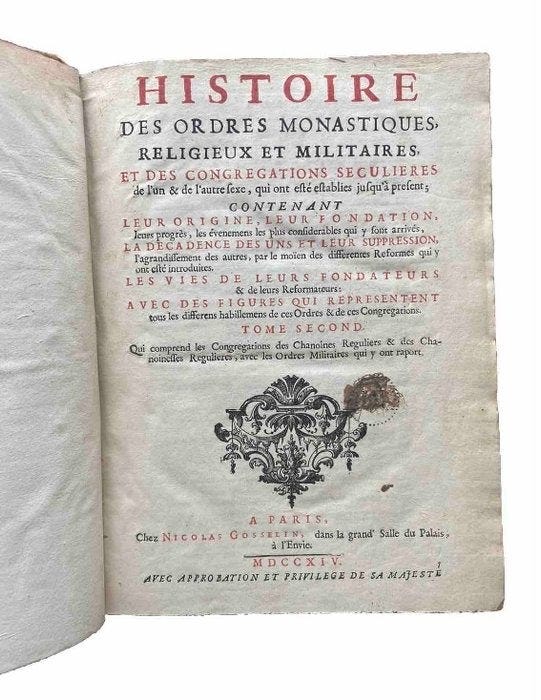 HISTOIRE
DES ORDRES MONASTIQUES,
RELIGIEUX ET MILITAIRES,
ET DES CONGREGATIONS SECULIERES
de l'un & de l'autre sexe, qui ont esté establies jusqu'à present;
CONTENANT
LEUR ORIGINE, LEUR FONDATION,
leurs progrès, les évenemens les plus considerables qui y sont arrivés,
LA DECADENCE DES UNS ET LEUR SUPPRESSION,
l'agrandissement des autres, par le moïen des differentes Reformes qui y
ont esté introduites.
LES VIES DE LEURS FONDATEURS
& de leurs Reformateurs:
AVEC DES FIGURES QUI REPRESENTENT
tous les differens habillemens de ces Ordres & de ces Congregations.
TOME SECOND.
Qui comprend les Congregations des Chanoines Reguliers & des Cha-
noinesses Regulieres, avec les Ordres Militaires qui y ont raport.
A PARIS,
Chez NICOLAS GOSSELIN, dans la grand' Salle du Palais,
à l'Envie.
MDCCXIV.
AVEC APPROBATION ET PRIVILEGE DE SA MAJESTE